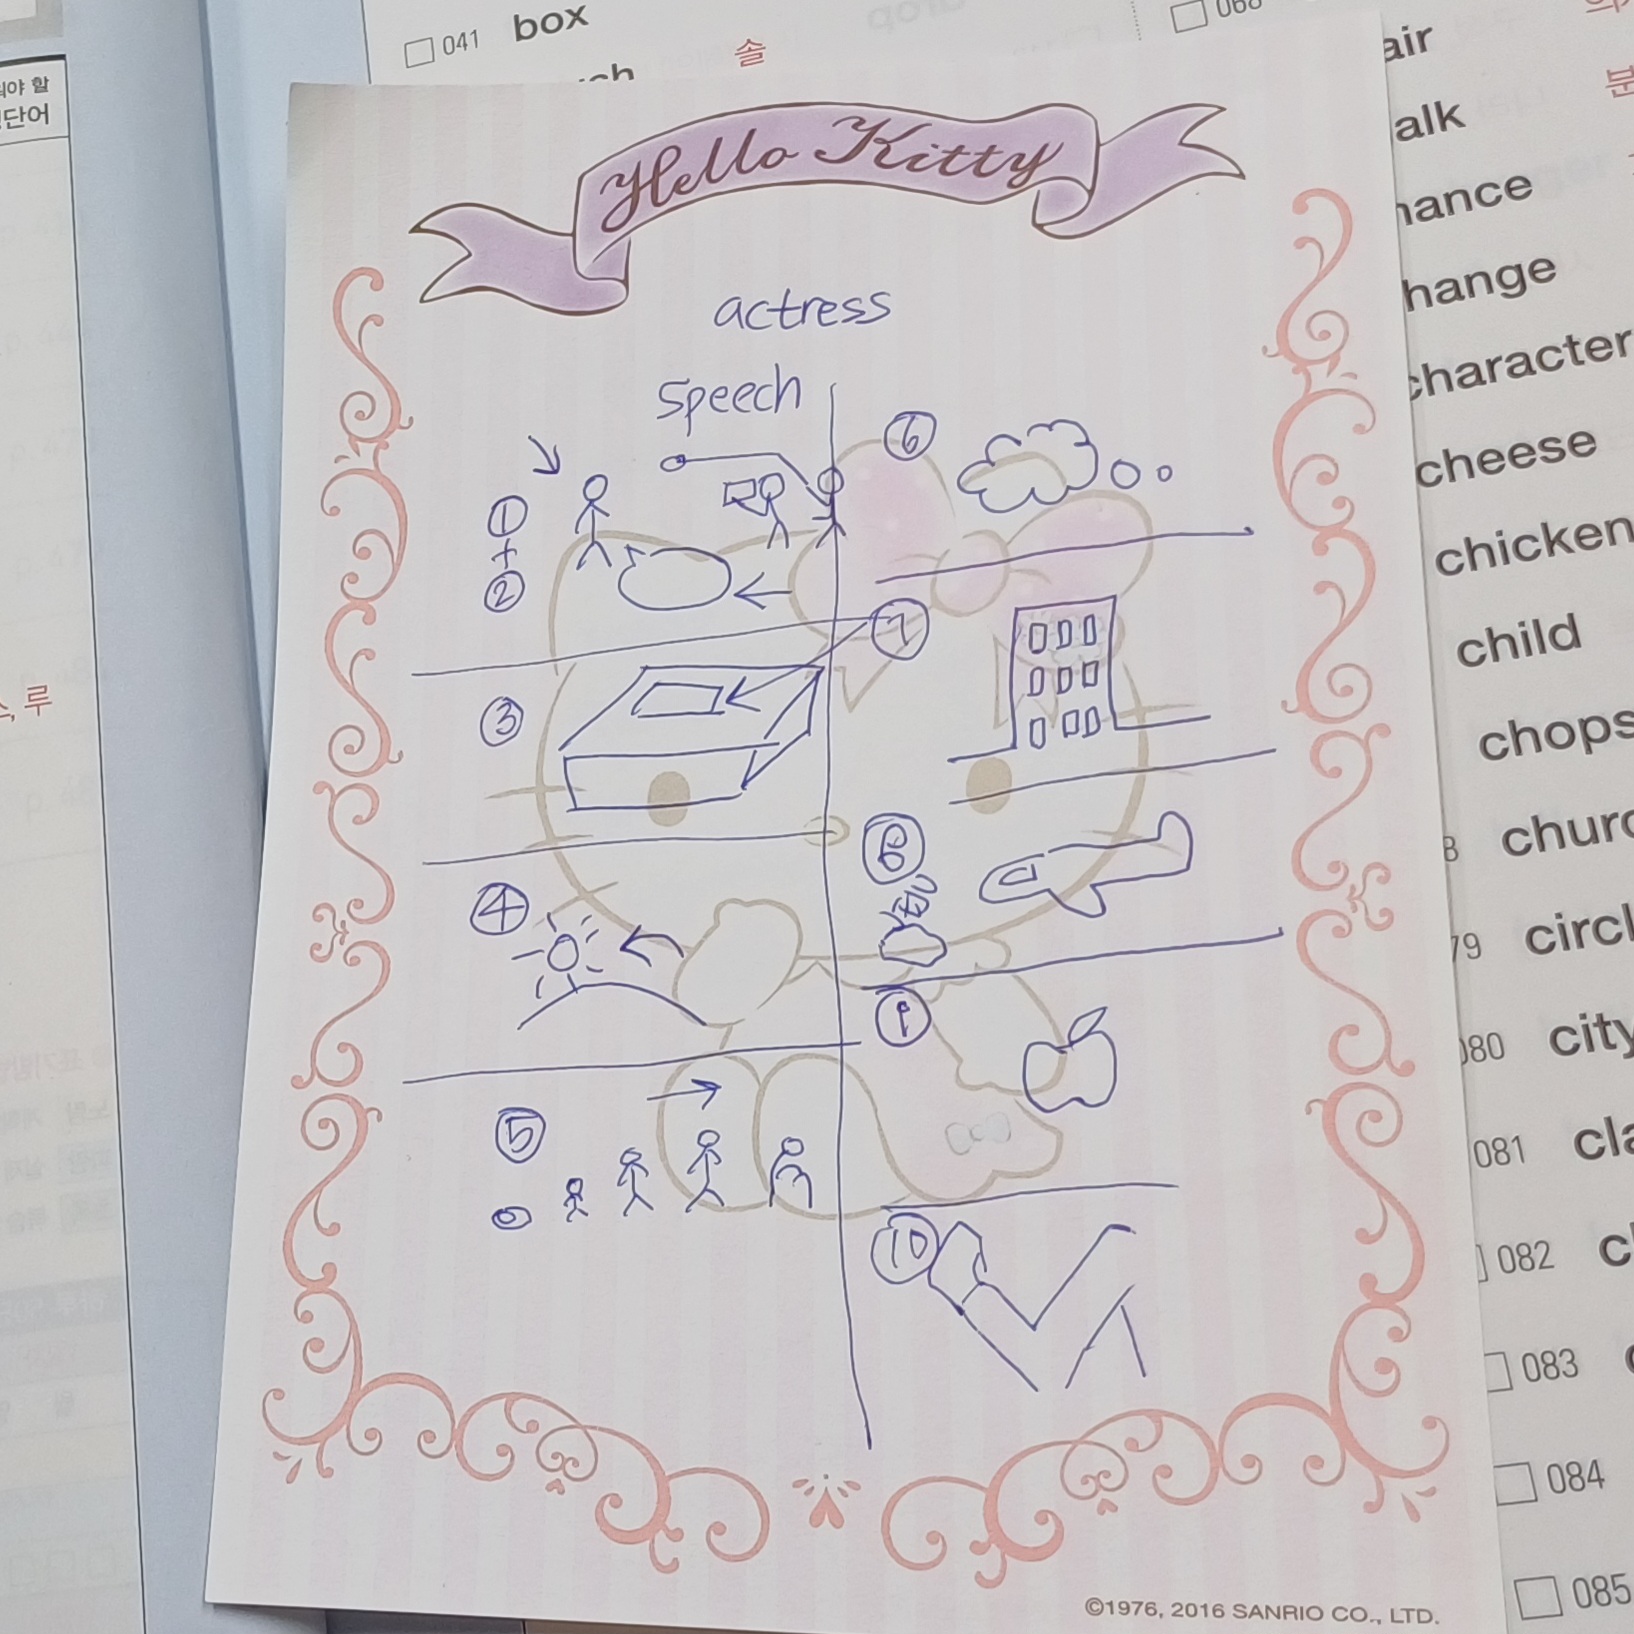 외야 할
단어
스, 루
041 box
솔
068
air
분
alk
hance
hange
character
cheese
chicken
child
chops
churc
79 circl
080 city
081 cla
082 c
083
084
085
Hello Kitty
actress
speech
①
+
②
③
④
⑤
⑥
⑦
⑧
⑨
⑩
©1976, 2016 SANRIO CO., LTD.